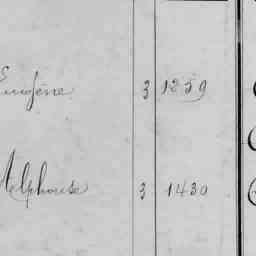 Eugène 3 1259
Alphonse 3 1430